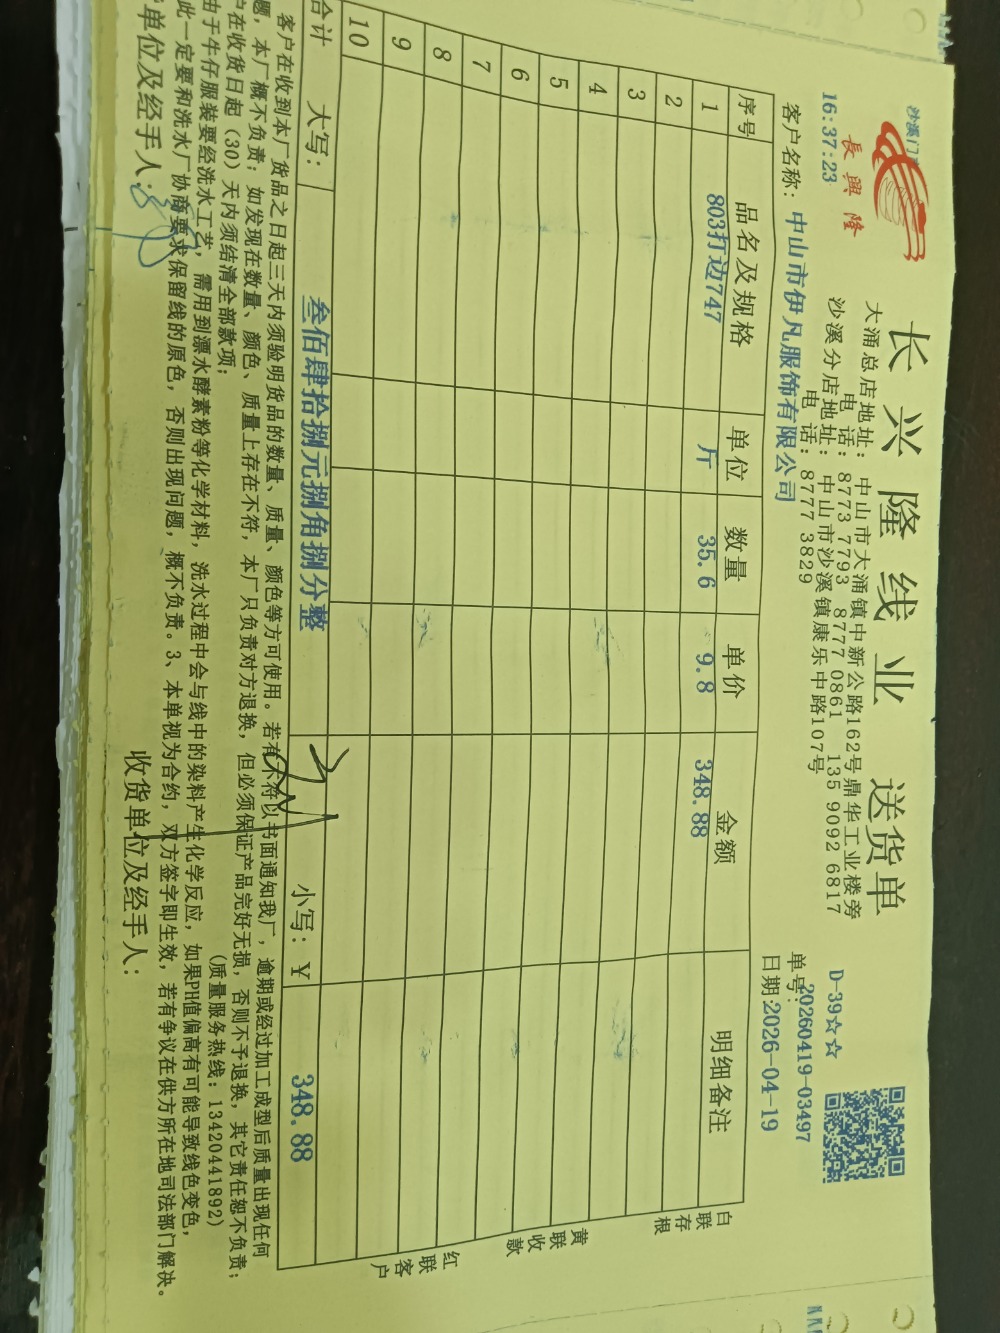 長興隆
沙溪门
16:37:23
长兴隆线业 送货单
大涌总店地址：中山市大涌镇中新公路162号鼎华工业楼旁
电 话：8773 7793 8777 0861 135 9092 6817
沙溪分店地址：中山市沙溪镇康乐中路107号
电 话：8777 3829
D-39☆☆
单号:20260419-03497
客户名称：中山市伊凡服饰有限公司
日期:2026-04-19
序号 品名及规格 单位 数量 单价 金额 明细备注
1 803打边747 斤 35.6 9.8 348.88
2
3
4
5
6
7
8
9
10
合计 大写：叁佰肆拾捌元捌角捌分整 小写：￥ 348.88
白联存根
黄联收款
红联客户
客户在收到本厂货品之日起三天内须验明货品的数量、质量、颜色等方可使用。若有不符以书面通知我厂，逾期或经过加工成型后质量出现任何
题，本厂概不负责；如发现在数量、颜色、质量上存在不符，本厂只负责对方退换，但必须保证产品完好无损，否则不予退换，其它责任恕不负责；
户在收货日起（30）天内须结清全部款项； (质量服务热线：13420441892)
由于牛仔服装要经洗水工艺，需用到漂水酵素粉等化学材料，洗水过程中会与线中的染料产生化学反应，如果PH值偏高有可能导致线色变色，
此一定要和洗水厂协商要求保留线的原色，否则出现问题，概不负责。3、本单视为合约，双方签字即生效，若有争议在供方所在地司法部门解决。
单位及经手人： 收货单位及经手人：